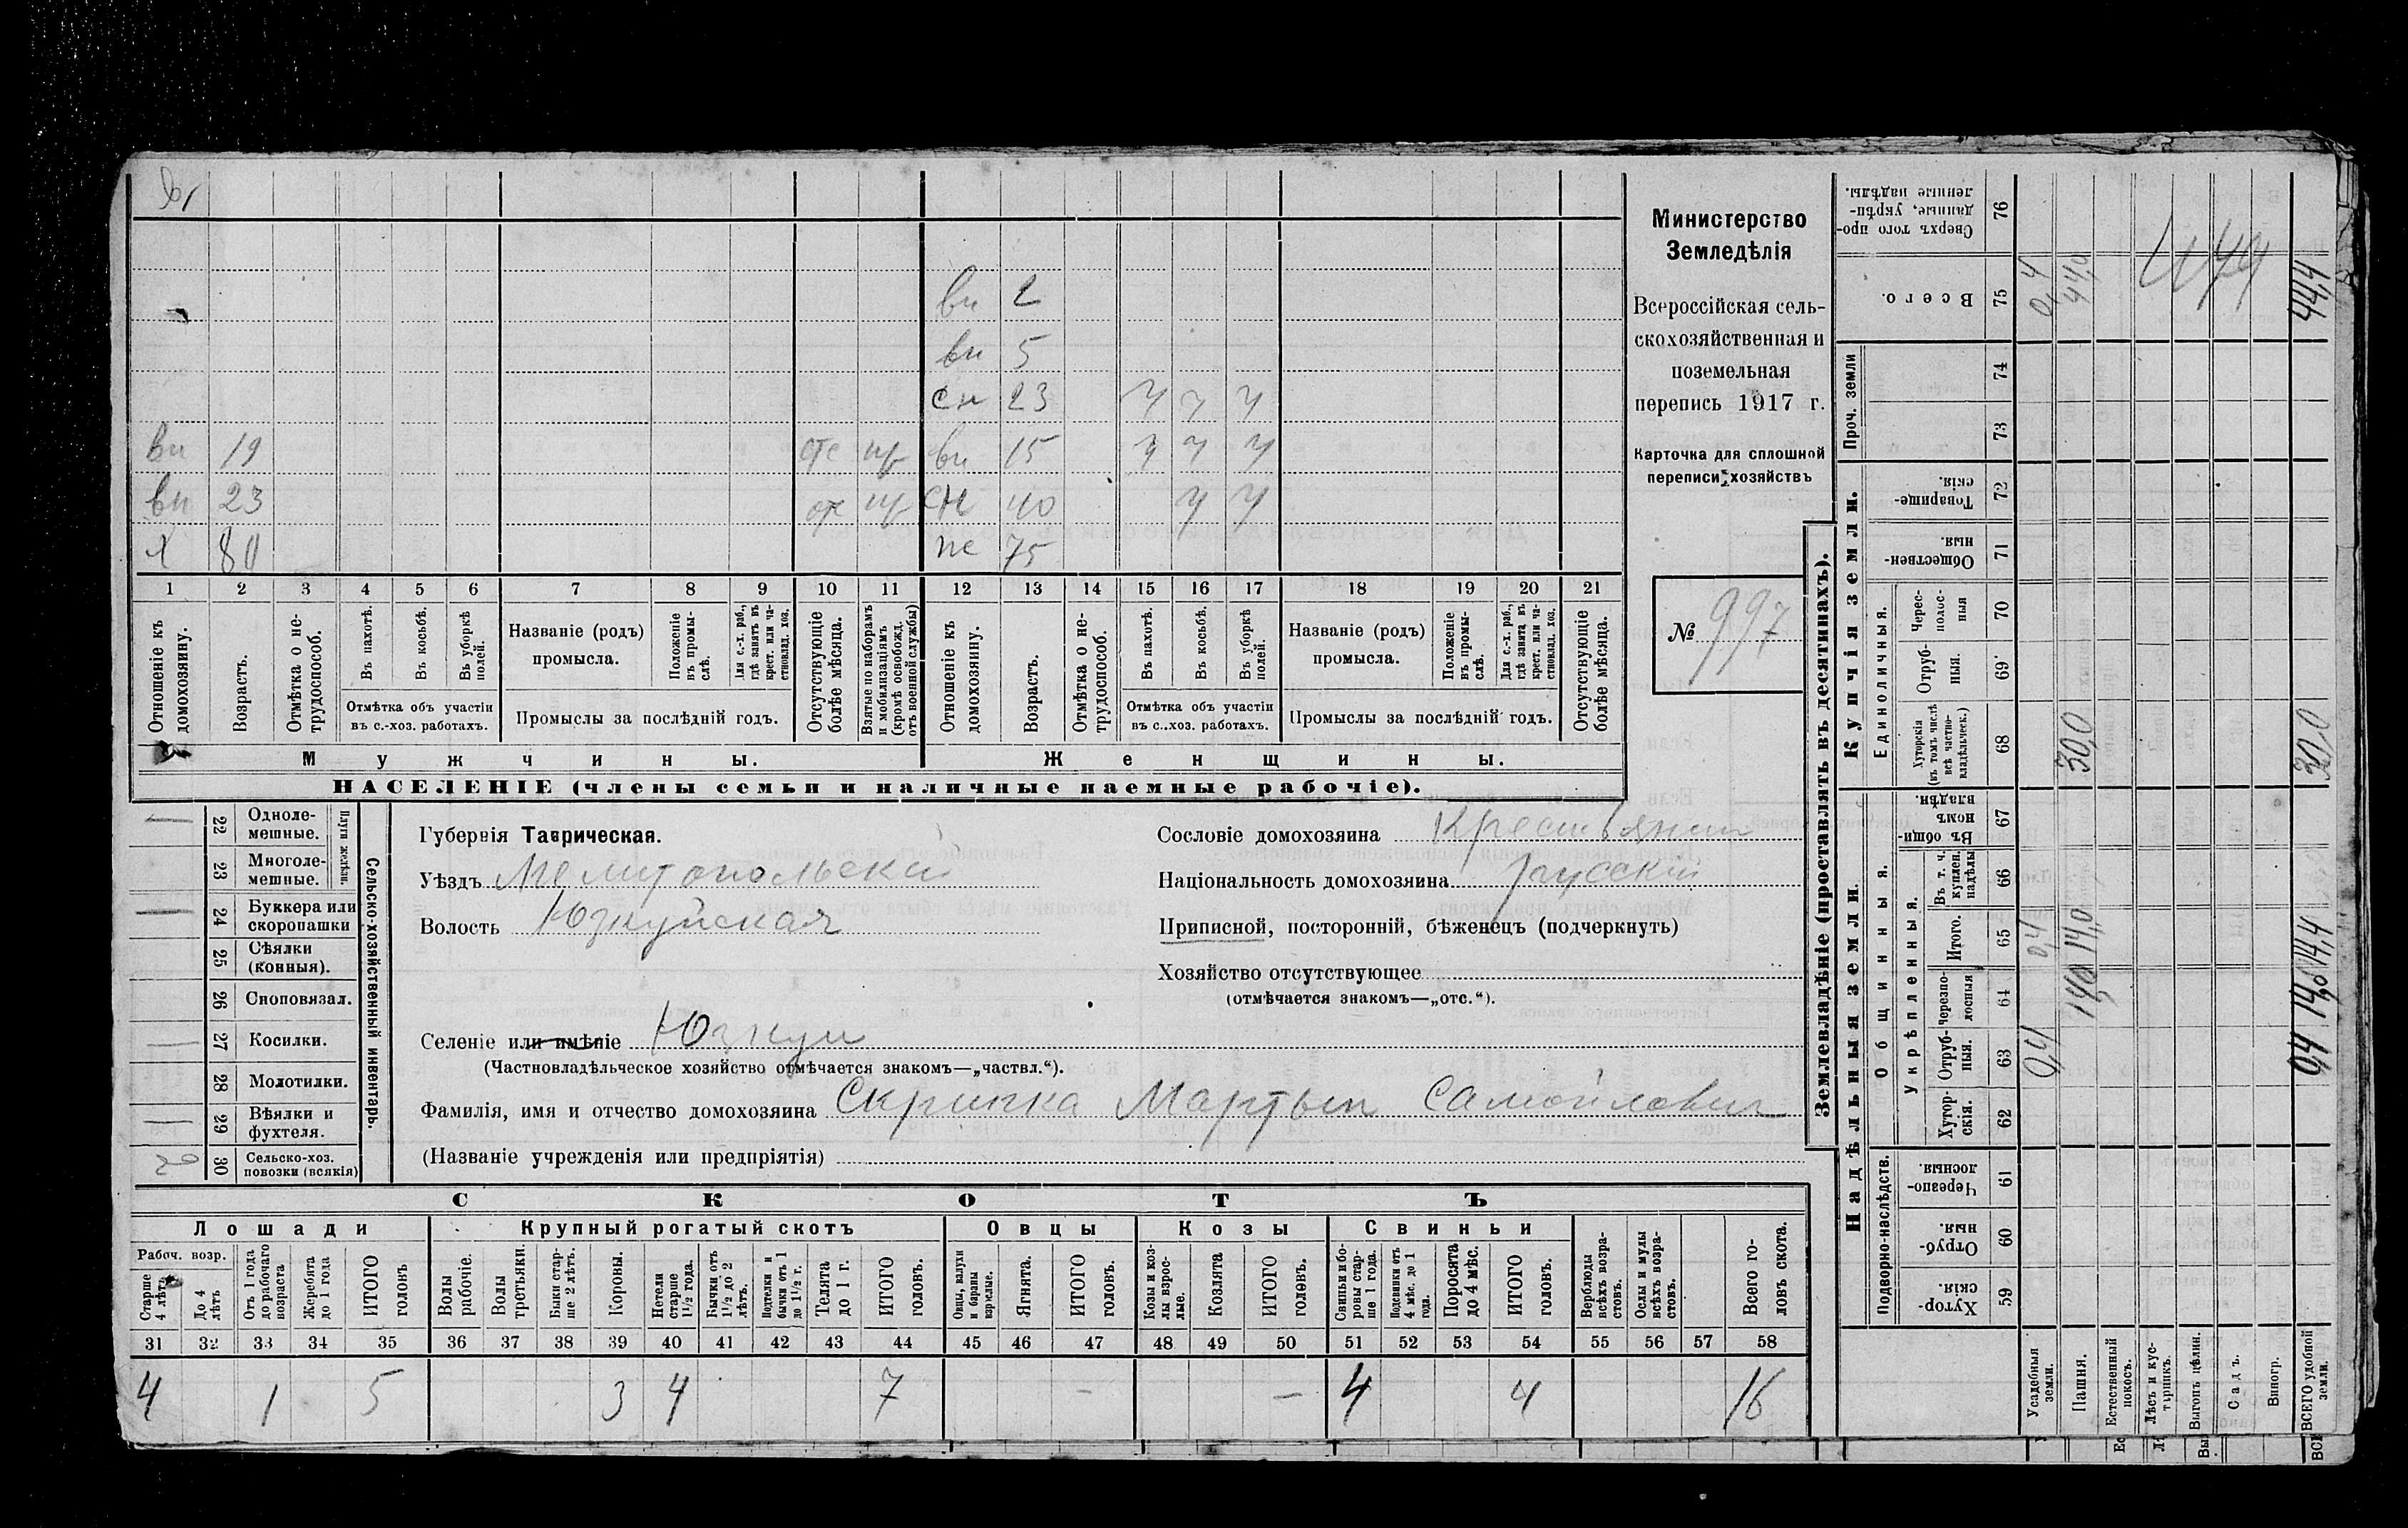 вн 2
вн 5
сн 23 ч ч ч
вн 19 отс вн 15 ч ч ч
вн 23 отс сн 40 ч ч
х 80 75
1 2 3 4 5 6 7 8 9 10 11 12 13 14 15 16 17 18 19 20 21
Отношеніе къ домохозяину.
Возрастъ.
Отмѣтка о не-
трудоспособ.
Въ пахотѣ.
Въ косьбѣ.
Въ уборкѣ
полей.
Отмѣтка объ участіи
въ с.-хоз. работахъ.
Названіе (родъ)
промысла.
Положеніе
въ промы-
слѣ.
Для с.-х. раб.,
гдѣ занятъ въ
крест. или ча-
стновлад. хоз.
Промыслы за послѣдній годъ.
Отсутствующіе
болѣе мѣсяца.
Взятые по наборамъ
и мобилизаціямъ
(кромѣ освобожд.
отъ военной службы)
Отношеніе къ
домохозяину.
Возрастъ.
Отмѣтка о не-
трудоспособ.
Въ пахотѣ.
Въ косьбѣ.
Въ уборкѣ
полей.
Отмѣтка объ участіи
въ с.-хоз. работахъ.
Названіе (родъ)
промысла.
Положеніе
въ промы-
слѣ.
Для с.-х. раб.,
гдѣ занята въ
крест. или ча-
стновлад. хоз.
Промыслы за послѣдній годъ.
Отсутствующіе
болѣе мѣсяца.
Мужчины. Женщины.
НАСЕЛЕНІЕ (члены семьи и наличные наемные рабочіе).
Министерство
Земледѣлія
Всероссійская сель-
скохозяйственная и
поземельная
перепись 1917 г.
Карточка для сплошной
переписи хозяйствъ
№ 997
22 Одноле-
мешные.
23 Многоле-
мешные.
Плуги желѣзн.
24 Буккера или
скоропашки
25 Сѣялки
(конныя).
26 Сноповязал.
27 Косилки.
28 Молотилки.
29 Вѣялки и
фухтеля.
30 Сельско-хоз.
повозки (всякія)
2
Сельско-хозяйственный инвентарь.
Губернія Таврическая.
Уѣздъ Мелитопольскій
Волость Юзкуйская
Селеніе или имѣніе Юзкуи
(Частновладѣльческое хозяйство отмѣчается знакомъ—„частвл.“).
Фамилія, имя и отчество домохозяина Скрипка Мартын Самойлович
(Названіе учрежденія или предпріятія)
Сословіе домохозяина Крестьянин
Національность домохозяина русскій
Приписной, посторонній, бѣженецъ (подчеркнуть)
Хозяйство отсутствующее
(отмѣчается знакомъ—„отс.“).
СКОТЪ
Лошади Крупный рогатый скотъ Овцы Козы Свиньи
Рабоч. возр.
Старше
4 лѣтъ
До 4
лѣтъ
Отъ 1 года
до рабочаго
возраста
Жеребята
до 1 года
ИТОГО
головъ
Волы
рабочіе.
Волы
третьяки.
Быки стар-
ше 2 лѣтъ.
Коровы.
Нетели
старше
1½ года.
Бычки отъ
1½ до 2
лѣтъ.
Подтелки и
бычки отъ 1
до 1½ г.
Телята
до 1 г.
ИТОГО
головъ.
Овцы, валухи
и бараны
взрослые.
Ягнята.
ИТОГО
головъ.
Козы и коз-
лы взрос-
лые.
Козлята
ИТОГО
головъ.
Свиньи и бо-
ровы стар-
ше 1 года.
Подсвинки отъ
4 мѣс. до 1
года.
Поросята
до 4 мѣс.
ИТОГО
головъ.
Верблюды
всѣхъ возра-
стовъ.
Ослы и мулы
всѣхъ возра-
стовъ.
Всего го-
ловъ скота.
31 32 33 34 35 36 37 38 39 40 41 42 43 44 45 46 47 48 49 50 51 52 53 54 55 56 57 58
4 1 5 3 4 7 - - 4 4 16
Землевладѣніе (проставлять въ десятинахъ).
Надѣльныя земли. Купчія земли. Проч. земли
Подворно-наслѣдств. Общинныя. Единоличныя.
Укрѣпленныя.
Хутор-
скія. 59
Отруб-
ныя. 60
Черезпо-
лосныя. 61
Хутор-
скія. 62
Отруб-
ныя. 63
Черезпо-
лосныя 64
Итого. 65
Въ т. ч.
куплен.
надѣлы 66
Въ общи-
номъ
владѣн. 67
Хуторскія
(въ томъ числѣ
всѣ частно-
владѣльческ.) 68
Отруб-
ныя. 69
Черес-
полос-
ныя 70
Обществен-
ныя. 71
Товарище-
скія. 72
73
74
Всего. 75
Сверхъ того про-
данные, укрѣп-
ленные надѣлы. 76
Усадебныя
земли. 0,4 0,4 0,4
Пашня. 14,0 14,0 30,0 44,0
Естественный
покосъ.
Лѣсъ и кус-
тарникъ.
Выгонъ цѣлин.
Садъ.
Виногр.
ВСЕГО удобной
земли. 0,4 14,0 14,4 30,0 44,4